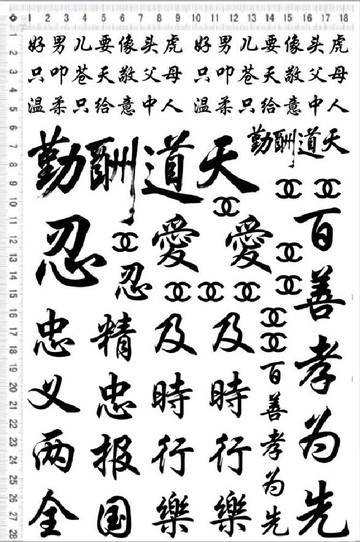 1 2 3 4 5 6 7 8 9 10 11 12 13 14 15 16 17 18
1 2 3 4 5 6 7 8 9 10 11 12 13 14 15 16 17 18 19 20 21 22 23 24 25 26 27 28
好男儿要像头虎 好男儿要像头虎
只叩苍天敬父母 只叩苍天敬父母
温柔只给意中人 温柔只给意中人
天道酬勤
天道酬勤
忍
忍
愛
愛
忠义两全
精忠报国
及時行樂
及時行樂
百善孝为先
百善孝为先